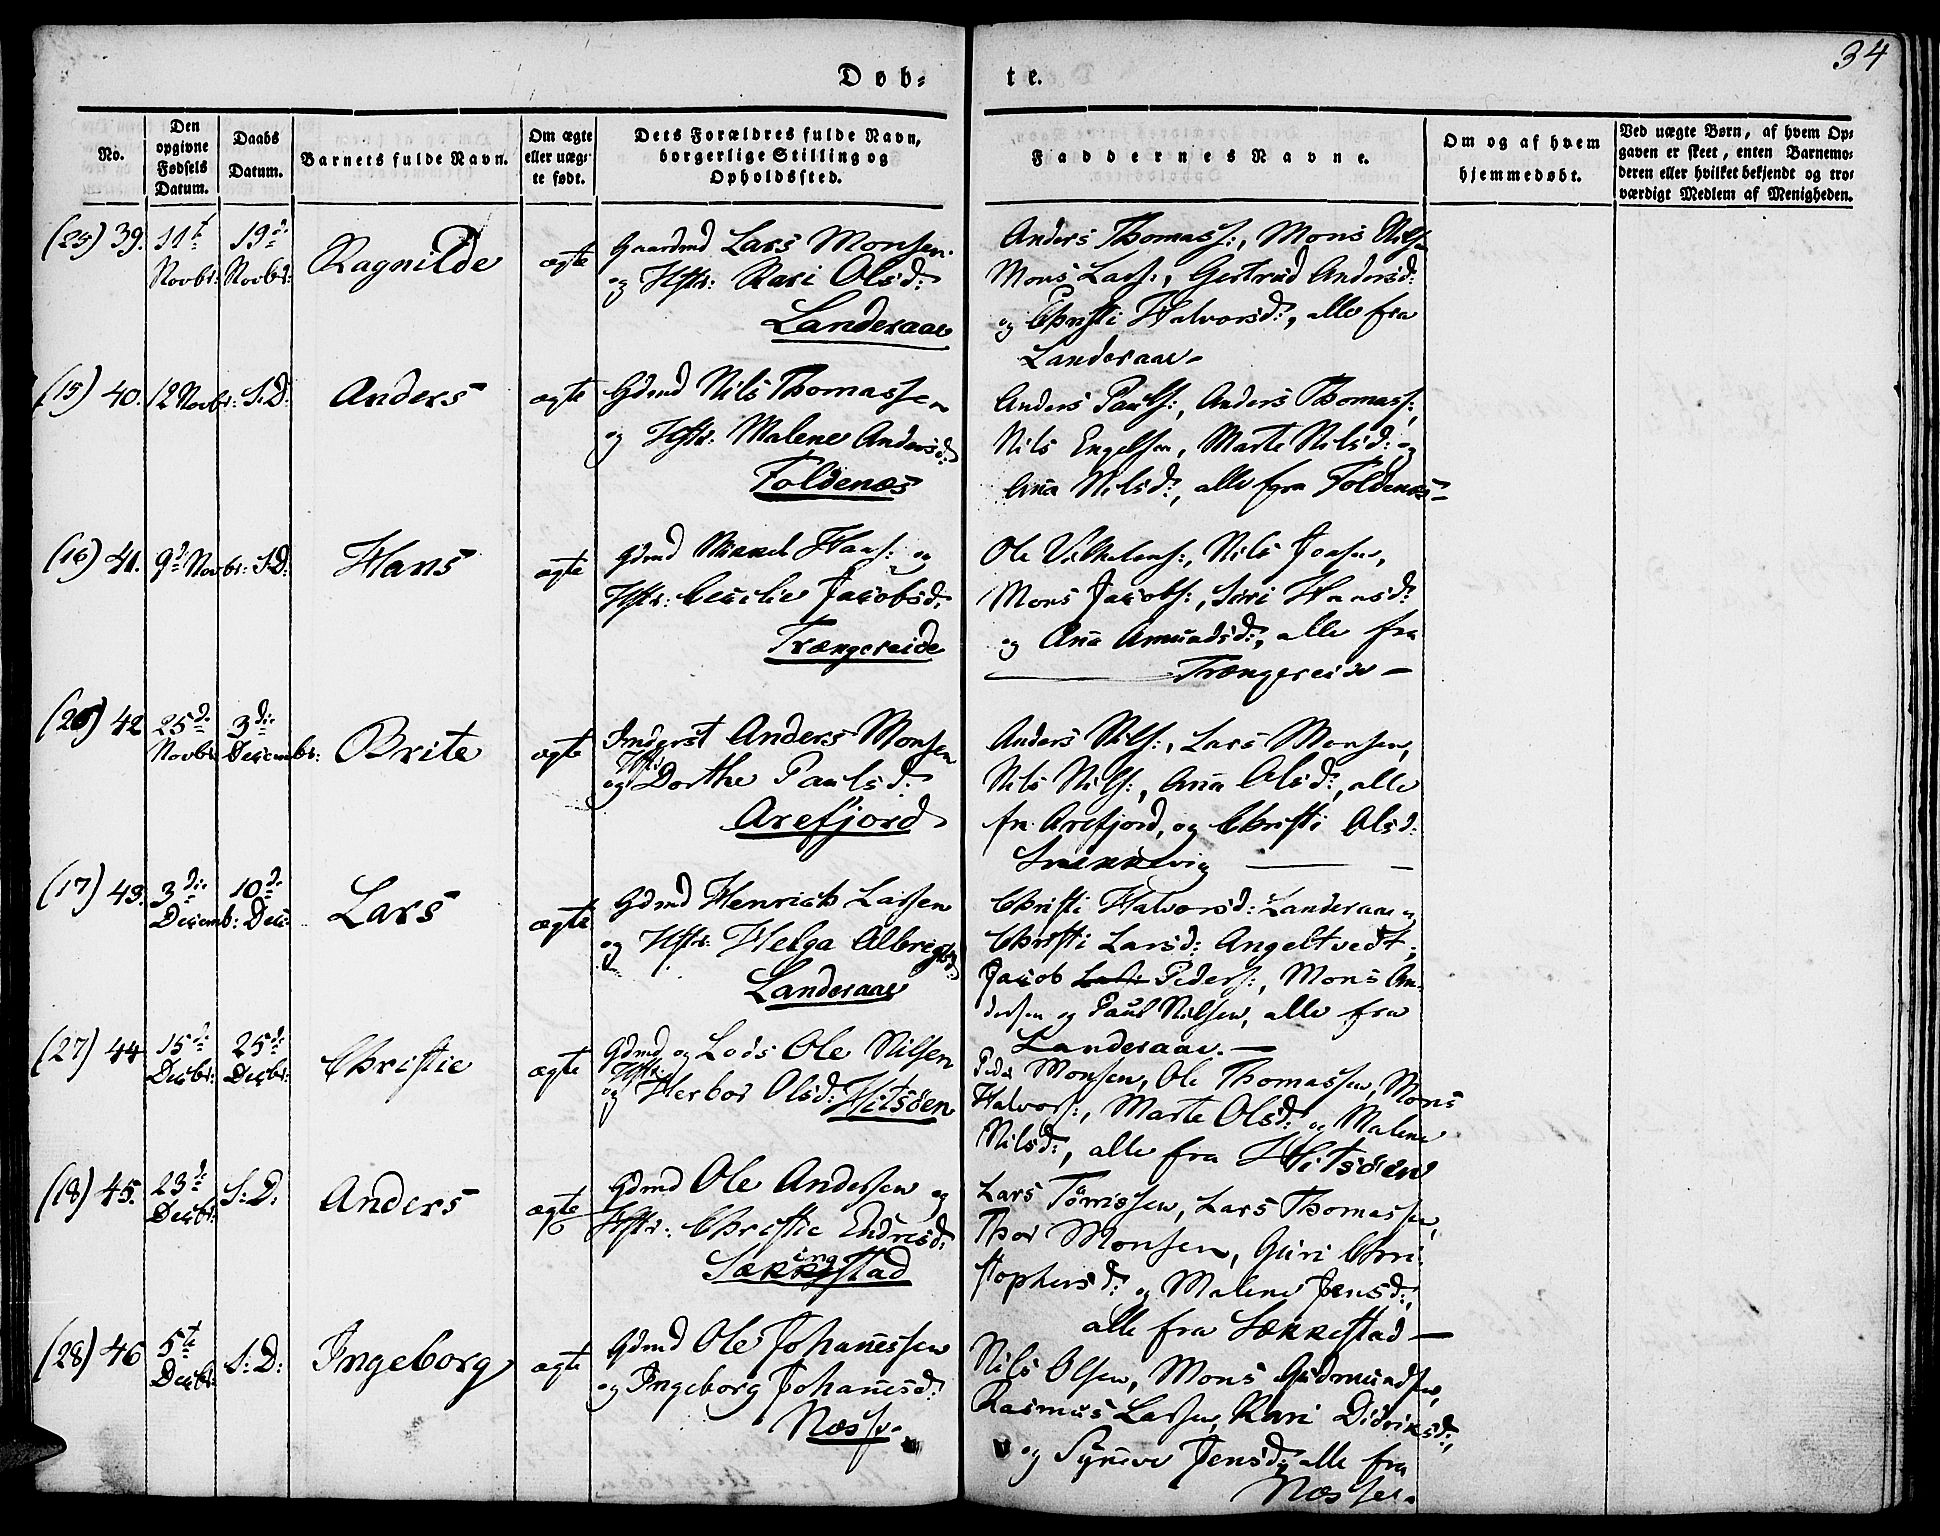 34
Døb-
te.
No.
Den opgivne Fødsels Datum.
Daabs Datum.
Barnets fulde Navn.
Om ægte eller uæg-te født.
Dets Forældres fulde Navn, borgerlige Stilling og Opholdssted.
Faddernes Navne.
Om og af hvem hjemmedøbt.
Ved uægte Børn, af hvem Op-gaven er skeet, enten Barnemo-deren eller hvilket bekjendt og tro-værdigt Medlem af Menigheden.
(25) 39. 11te Novbr: 19de Novbr: Ragnilde ægte
Gaardmd Lars Monsen
og Hstr: Kari Olsd:
Landeraae
Anders Thomass:, Mons Nils
Mons Lars:, Gertrud Andersd:
og Christi Halvorsd:, alle fra
Landeraae-
(15) 40. 12 Novbr: S.D: Anders ægte
Gdmd Nils Thomassen
og Hstr: Malene Andersd:
Foldenæs
Anders Pauls:, Anders Thomass:,
Nils Engelsen, Marte Nilsd: og
Aña Nilsd:, alle fra Foldenæs-
(16) 41. 9de Novbr: S.D: Hans ægte
Gdmd Mikkel Hans: og
Hstr: Cecilie Jacobsd:
Trængereide
Ole Vilhelms:, Nils Joasen,
Mons Jacobs:, Siri Hansd:
og Aña Amundsd:, alle fra
Trængereide-
(26) 42 25de Novbr 3die Decembr: Brite ægte
Inderst Anders Monsen
og Hstr: Dorthe Paulsd:
Arefjord
Anders Nils:, Lars Monsen,
Nils Nils:, Aña Olsd:, alle
fra Arefjord, og Christi Olsd:
Snekkevig
(17) 43. 3die Decemb: 10de Decbr: Lars ægte
Gdmd Henrich Larsen
og Hstr: Helga Albregtsd:
Landeraae
Christi Halvorsd: Landeraae og
Christi Larsd: Angeltvedt,
Jacob Lars: Peders:, Mons An-
dersen og Paul Nilsen, alle fra
Landeraae.-
(27) 44 15de Decbr: 25de Decbr: Christie ægte
Gdmd og Lods Ole Nilsen
og Hstr: Herbor Olsd: Hitsöen
Peder Monsen, Ole Thomassen, Mons
Halvors:, Marte Olsd: og Malene
Nilsd:, alle fra Hitsöen
(18) 45. 23de Decbr: S:D: Anders ægte
Gdmd Ole Andersen og
Hstr: Christie Endresd:
Sækkingstad
Lars Törrissen, Lars Thomassen,
Thor Monsen, Guri Chri-
stophersd: og Malene Jensd:,
alle fra Sækkestad-
(28) 46 5te Decbr: S:D: Ingeborg ægte
Gdmd Ole Johañessen
og Ingeborg Johañesd:
Næsse.
Nils Olsen, Mons Gudmundsen,
Rasmus Larsen, Kari Didriksd:,
og Syñeve Jensd, alle fra
Næsse.